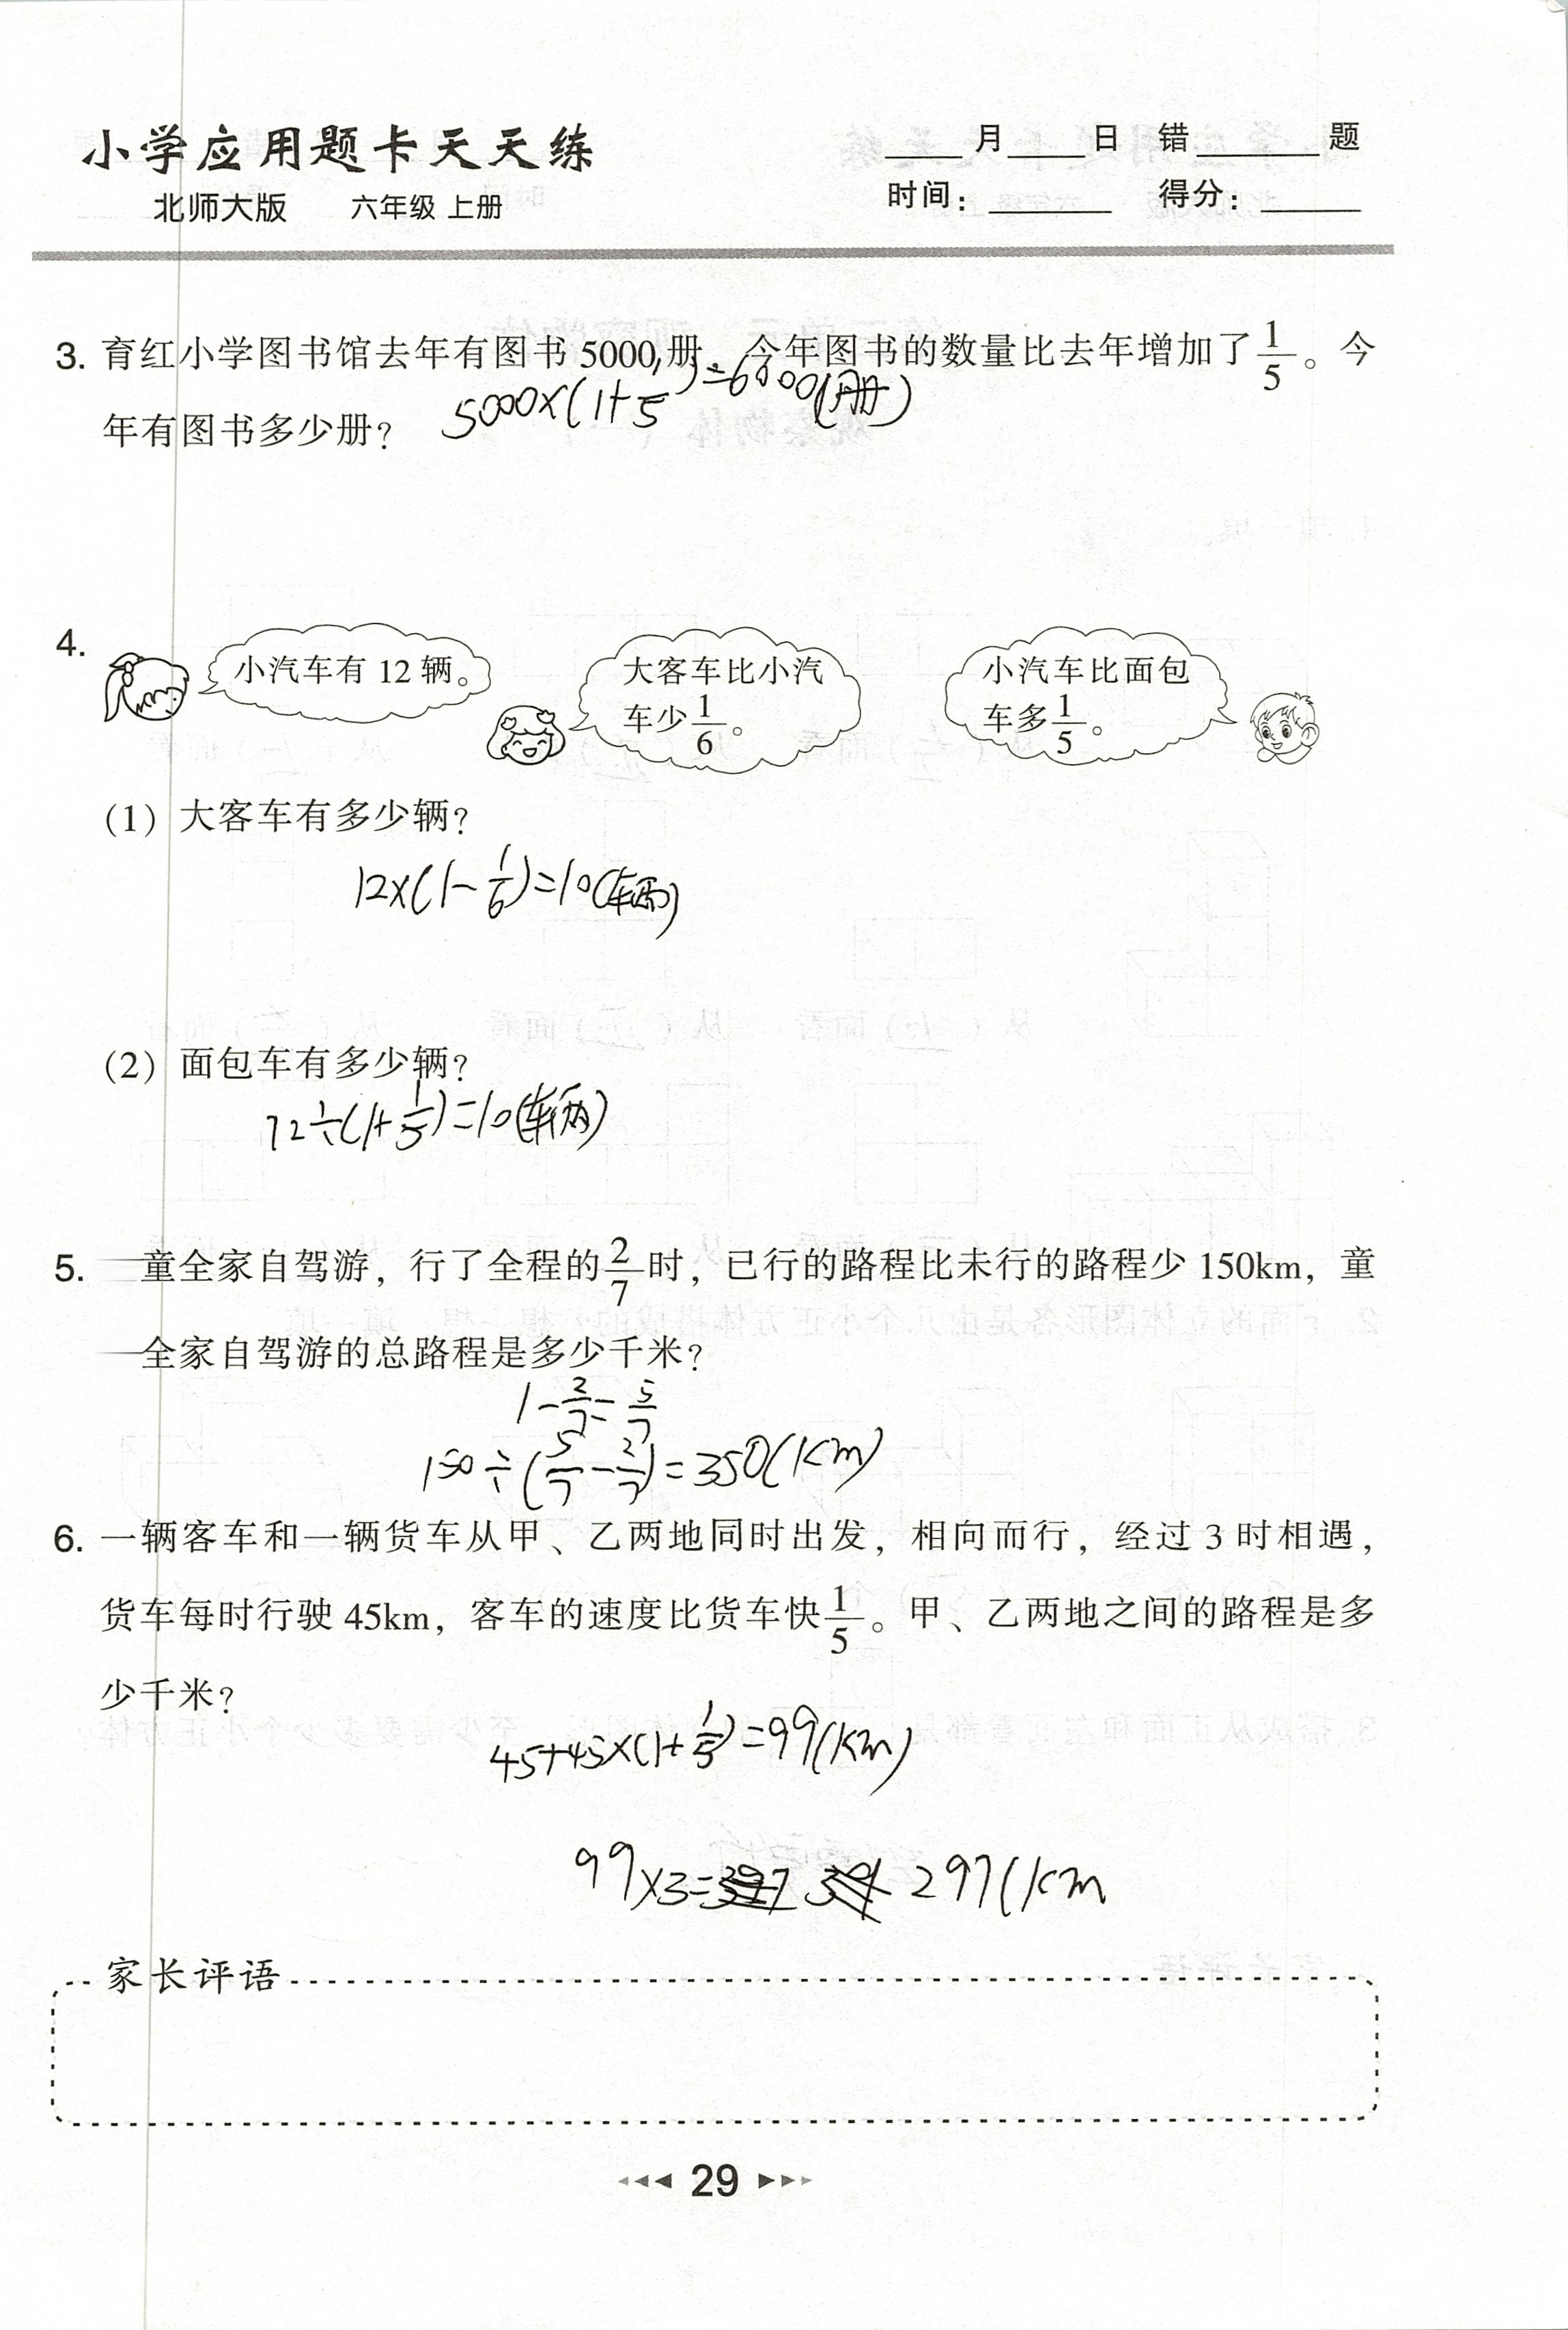 小学应用题卡天天练
北师大版 六年级 上册
____月____日 错______题
时间：______ 得分：_____
3. 育红小学图书馆去年有图书 5000 册，今年图书的数量比去年增加了1/5。今
年有图书多少册？
5000×(1+1/5)=6000(册)
4.
小汽车有 12 辆。
大客车比小汽
车少1/6。
小汽车比面包
车多1/5。
(1) 大客车有多少辆？
12×(1-1/6)=10(辆)
(2) 面包车有多少辆？
12÷(1+1/5)=10(辆)
5. 童全家自驾游，行了全程的2/7时，已行的路程比未行的路程少 150km，童
全家自驾游的总路程是多少千米？
1-2/7=5/7
150÷(5/7-2/7)=350(km)
6. 一辆客车和一辆货车从甲、乙两地同时出发，相向而行，经过 3 时相遇，
货车每时行驶 45km，客车的速度比货车快1/5。甲、乙两地之间的路程是多
少千米？
45+45×(1+1/5)=99(km)
99×3=297(km
家长评语
29